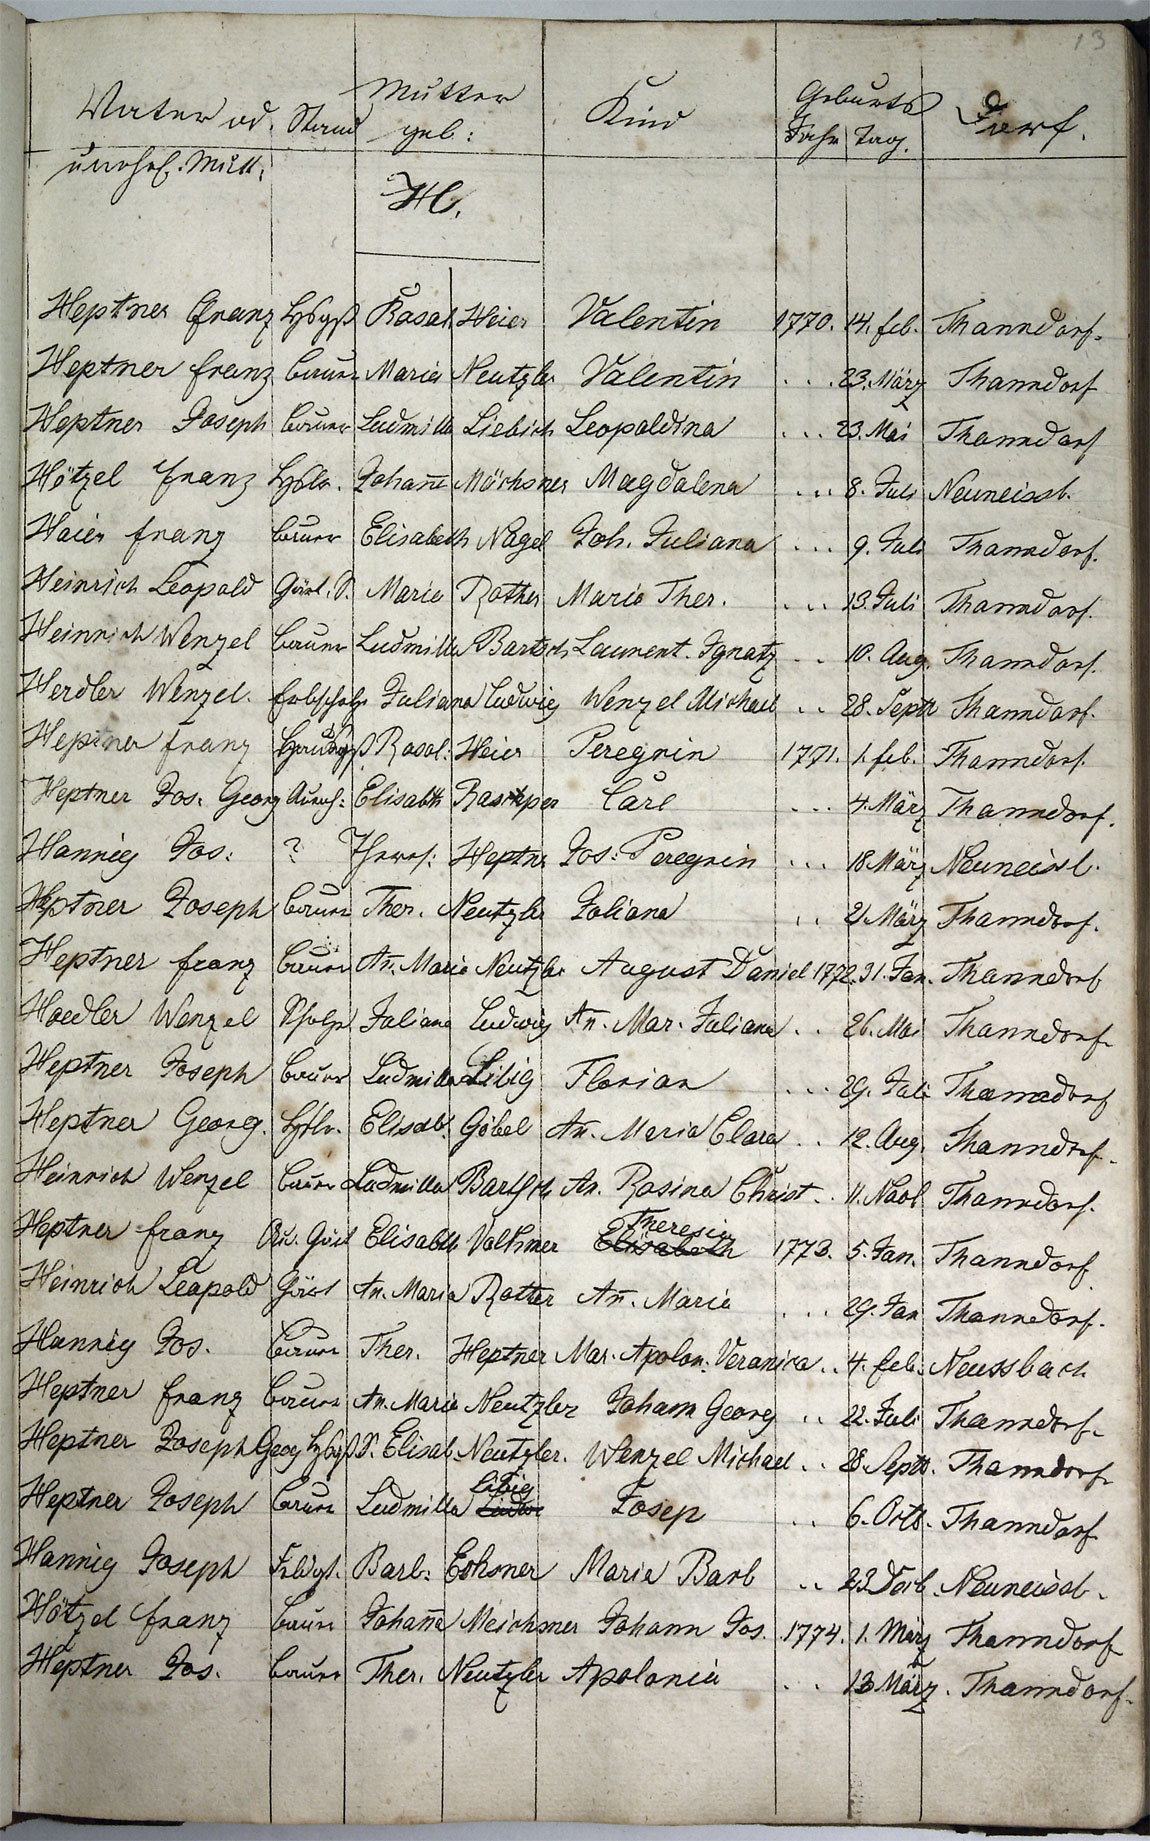 13
Vater od. Stand Mutter geb: Kind Geburts Jahr Tag. Dorf.
unehel. Mutt.
H.
Heptner Franz Hsbgß Rosal. Heier Valentin 1770. 14. feb. Thanndorf.
Heptner franz bauer Maria Neutzler Valentin . . . 23. März Thanndorf
Heptner Joseph bauer Ludmilla Liebich Leopoldina . . . 23. Mai Thanndorf
Hötzel franz Hslr. Johann̄ Mächsner Magdalena . . . 8. Juli Neuneissb.
Haier franz bauer Elisabeth Nagel Joh. Juliana . . . 9. Juli Thanndorf.
Heinrich Leopold Gärt. S. Maria Rother Maria Ther. . . . 13. Juli Thanndorf.
Heinrich Wenzel bauer Ludmilla Bartsch Laurent. Ignatz . . 10. Aug. Thanndorf.
Herdler Wenzel. Erbscholz Juliana Ludwig Wenzel Michael . . 28. Septb Thanndorf.
Heptner franz Rosal: Heier Peregrin 1771. 1. feb. Thanndorf.
Heptner Jos. Georg Elisabth Carl . . . 4. März Thanndorf.
Hannig Jos: ? Theres: Heptner Jos: Peregrin . . . 18 März Neuneissb.
Heptner Joseph bauer Ther. Neutzler Juliana . . 21. März Thanndorf.
Heptner franz bauer An̄. Maria Neutzler August Daniel 1772. 31. Jan. Thanndorf
Hoedler Wenzel Scholz Juliana Ludwig An̄. Mar. Juliana . . 26. Mai Thanndorf
Heptner Joseph bauer Ludmilla Libig Florian . . . 29. Juli Thanndorf
Heptner Georg. Hslr. Elisab. Göbel An̄. Maria Clara . . 12. Aug. Thanndorf.
Heinrich Wenzel bauer Ludmilla Bartsch An. Rosina Christ . . 11. Novb. Thanndorf.
Heptner franz Au. Gärt Elisabth Volkmer Elisabeth Theresia 1773. 5. Jan. Thanndorf
Heinrich Leopold Gärt An. Maria Rotter An̄. Maria . . . 29. Jan Thanndorf.
Hannig Jos. bauer Ther. Heptner Mar. Apolon. Veronica . . 4. feb. Neussbach
Heptner franz bauer An. Maria Neutzler Johann Georg . . 22. Juli Thanndorf.
Heptner Joseph Georg Hsbgß. S. Elisab. Neutzler. Wenzel Michael . . 28. Septb. Thanndorf
Heptner Joseph bauer Ludmilla Libig Josep . . 6. Octb. Thanndorf
Hannig Joseph Feldgt. Barb: Exner Maria Barb . . 23 Decb. Neuneissb.
Hötzel franz bauer Johan̄a Meichsner Johann Jos. 1774. 1. März Thanndorf
Heptner Jos. bauer Ther. Neutzler Apolonia . . . 13 März. Thanndorf.